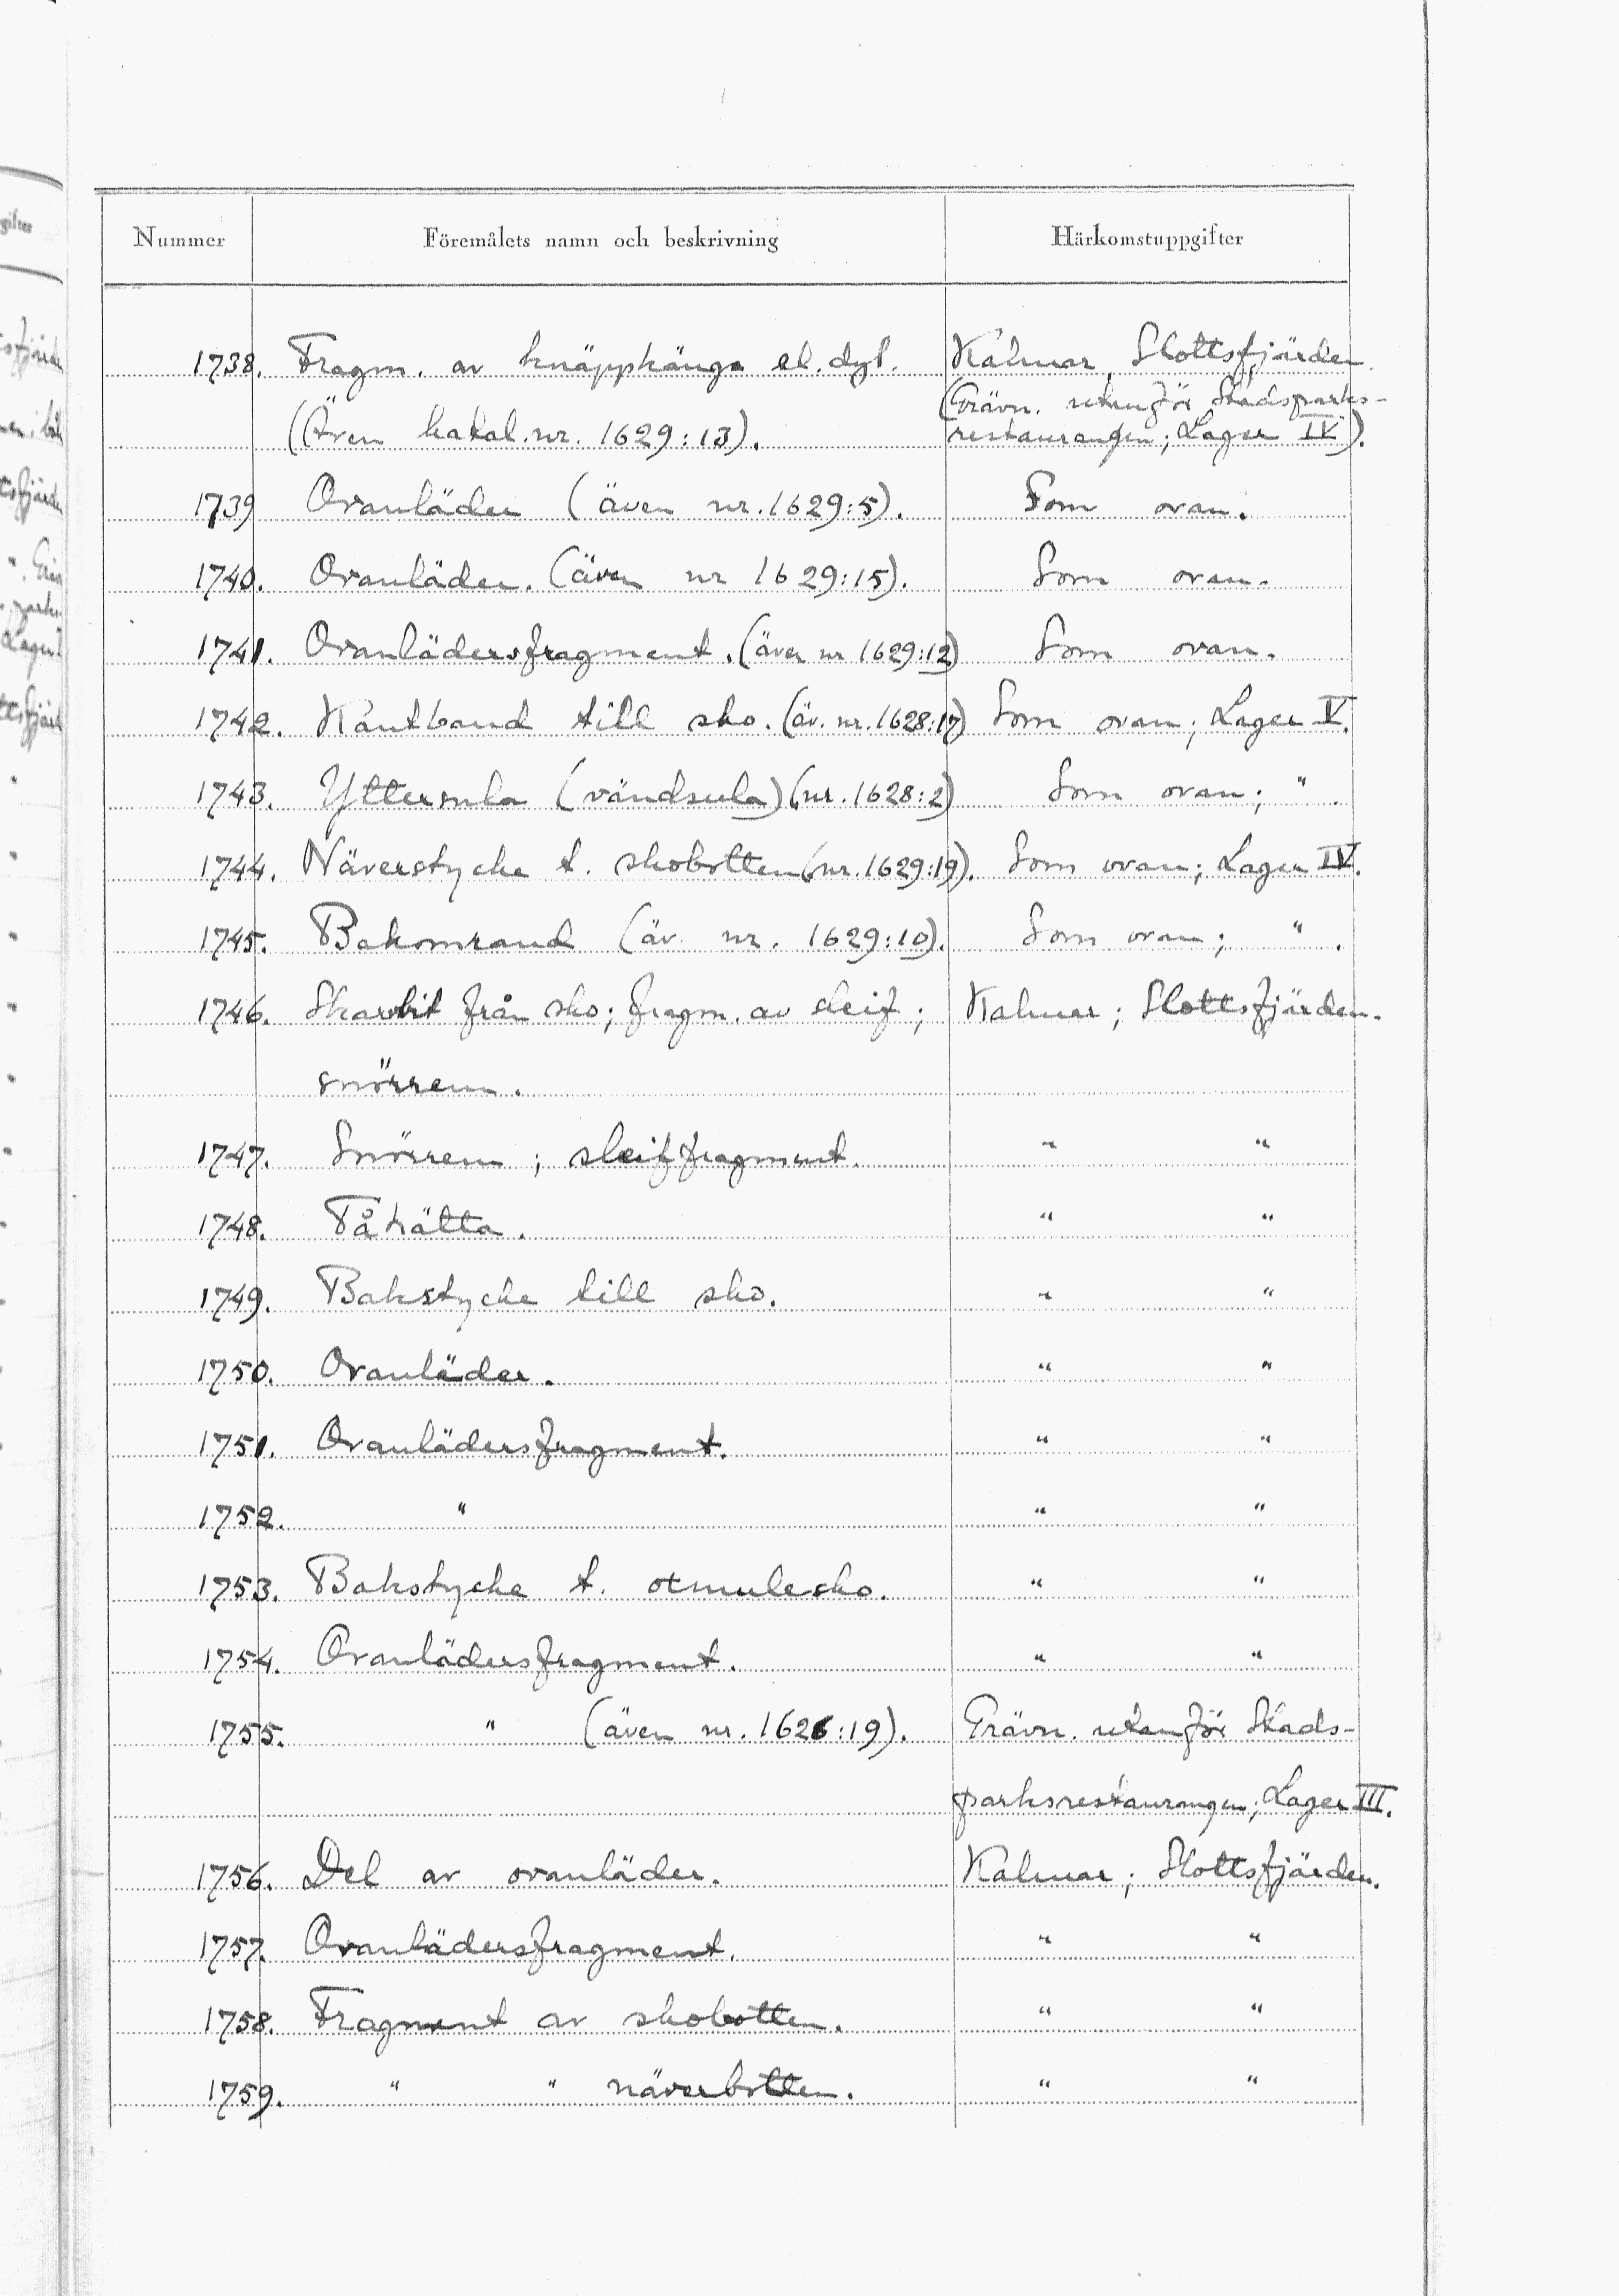 Nummer Föremålets namn och beskrivning Härkomstuppgifter
1738. Fragm. av knäppkänga el. dyl. Kalmar, Slottsfjärden.
(Grävn. utanför Stadsparks-
(Även katal. nr. 1629:13). restaurangen; Lager IV).
1739 Ovanläder (även nr. 1629:5). Som ovan.
1740. Ovanläder. (även nr 1629:15). Som ovan.
1741. Ovanlädersfragment. (även nr 1629:12) Som ovan.
1742. Kantband till sko. (äv. nr. 1628:17) Som ovan; Lager V.
1743. Yttersula (vändsula) (nr. 1628:2) Som ovan; " .
1744. Näverstycke t. skobotten (nr. 1629:19). Som ovan; Lager IV.
1745. Bakomrand (äv. nr. 1629:10). Som ovan; " .
1746. Skarvbit från sko; fragm. av sleif; Kalmar; Slottsfjärden.
snörrem.
1747. Snörrem; sleiffragment. " "
1748. Tåhätta. " "
1749. Bakstycke till sko. " "
1750. Ovanläder. " "
1751. Ovanlädersfragment. " "
1752. " " "
1753. Bakstycke t. oxmulesko. " "
1754. Ovanlädersfragment. " "
1755. " (även nr. 1626:19). Grävn. utanför Stads-
parksrestaurangen; Lager III.
1756. Del av ovanläder. Kalmar; Slottsfjärden.
1757. Ovanlädersfragment. " "
1758. Fragment av skobotten. " "
1759. " " näverbotten. " "